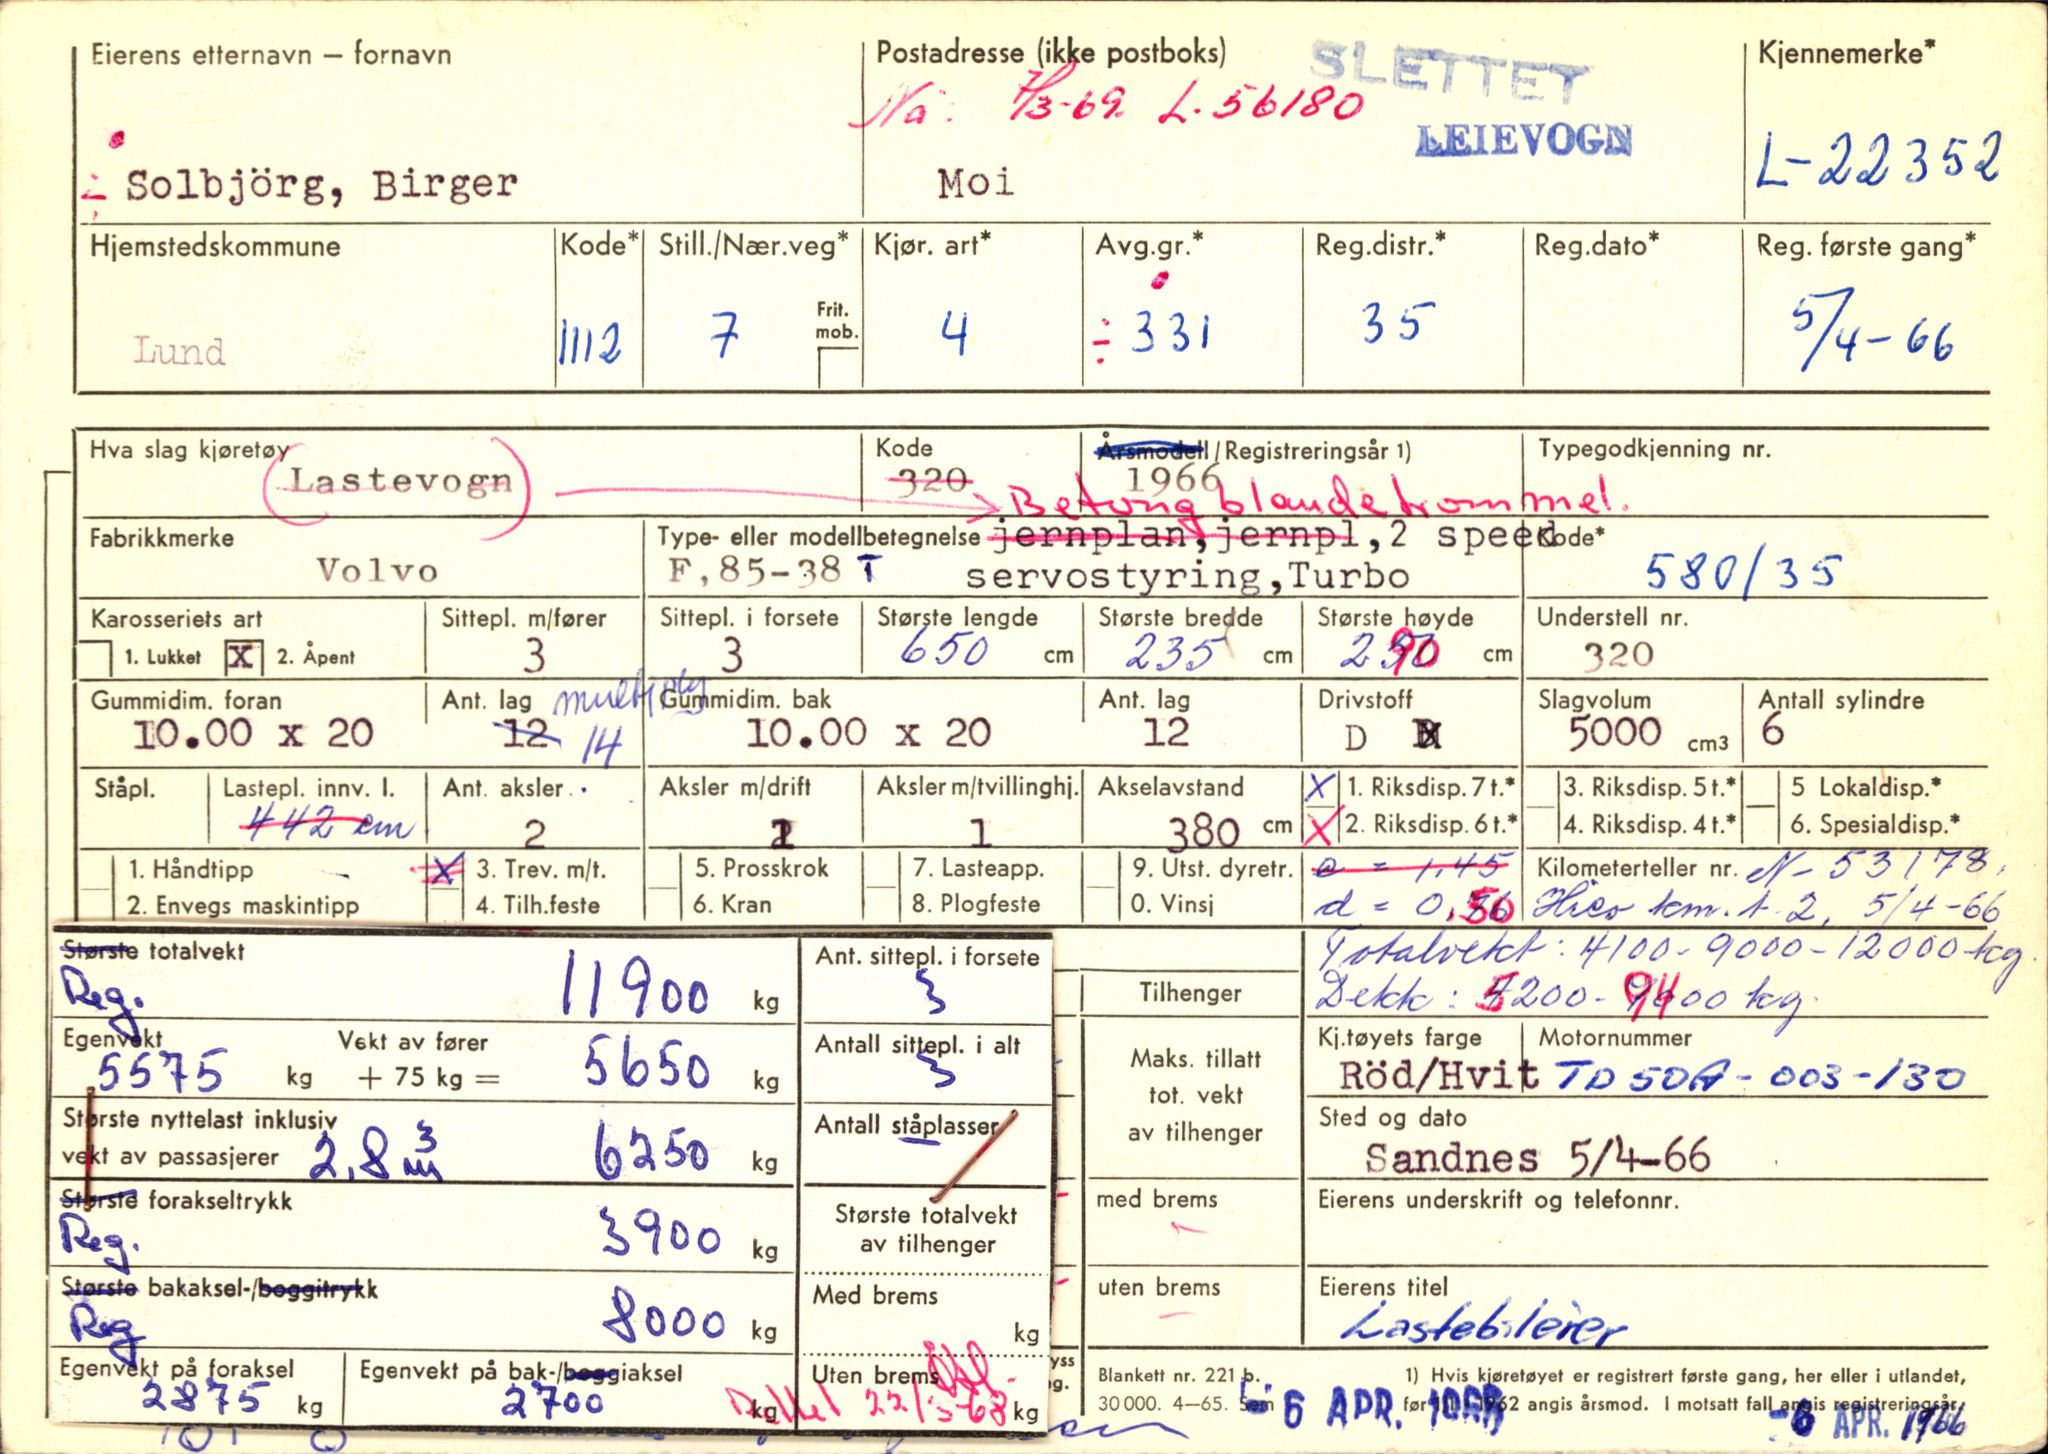 Eierens etternavn – fornavn
Postadresse (ikke postboks)
SLETTET
Kjennemerke*
Nå: 7/3-69. L-56180
LEIEVOGN
Solbjörg, Birger
Moi
L-22352
Hjemstedskommune
Kode*
Still./Nær.veg*
Kjør. art*
Avg.gr.*
Reg.distr.*
Reg.dato*
Reg. første gang*
Lund
1112
7
Frit. mob.
4
÷ 331
35
5/4-66
Hva slag kjøretøy
Lastevogn
Kode
320
Årsmodell/Registreringsår 1)
1966
Typegodkjenning nr.
Betong blandetrommel.
Fabrikkmerke
Volvo
Type- eller modellbetegnelse
jernplan, jernpl, 2 speed
F,85-38 T
servostyring, Turbo
Kode*
580/35
Karosseriets art
1. Lukket X 2. Åpent
Sittepl. m/fører
3
Sittepl. i forsete
3
Største lengde
650 cm
Største bredde
235 cm
Største høyde
290 cm
Understell nr.
320
Gummidim. foran
10.00 x 20
Ant. lag
12 14
multiply
Gummidim. bak
10.00 x 20
Ant. lag
12
Drivstoff
D
Slagvolum
5000 cm3
Antall sylindre
6
Ståpl.
Lastepl. innv. l.
442 cm
Ant. aksler
2
Aksler m/drift
1
Aksler m/tvillinghj.
1
Akselavstand
380 cm
X 1. Riksdisp. 7 t.*
X 2. Riksdisp. 6 t.*
3. Riksdisp. 5 t.*
4. Riksdisp. 4 t.*
5 Lokaldisp.*
6. Spesialdisp.*
1. Håndtipp
2. Envegs maskintipp
X 3. Trev. m/t.
4. Tilh.feste
5. Prosskrok
6. Kran
7. Lasteapp.
8. Plogfeste
9. Utst. dyretr.
0. Vinsj
a = 1,45
d = 0,50
Kilometerteller nr. N-53178,
Hico km.t. 2, 5/4-66
Totalvekt: 4100-9000-12000 kg.
Dekk: 5200-9400 kg.
Største totalvekt
Reg. 11900 kg
Ant. sittepl. i forsete
3
Egenvekt
5575 kg
Vekt av fører
+ 75 kg = 5650 kg
Antall sittepl. i alt
3
Største nyttelast inklusiv
vekt av passasjerer 2,8 m³ 6250 kg
Antall ståplasser
Største forakseltrykk
Reg. 3900 kg
Største totalvekt
av tilhenger
Største bakaksel-/boggitrykk
Reg 8000 kg
Med brems
kg
Egenvekt på foraksel
2875 kg
Egenvekt på bak-/boggiaksel
2700 kg
Uten brems
kg
22/3-68
Tilhenger
Maks. tillatt
tot. vekt
av tilhenger
med brems
uten brems
Kj.tøyets farge
Röd/Hvit
Motornummer
TD50A-003-130
Sted og dato
Sandnes 5/4-66
Eierens underskrift og telefonnr.
Eierens titel
Lastebileier
Blankett nr. 221 b.
30 000. 4—65. Sem
1) Hvis kjøretøyet er registrert første gang, her eller i utlandet,
før 1962 angis årsmod. I motsatt fall angis registreringsår.
- 6 APR. 1966
- 6 APR. 1966